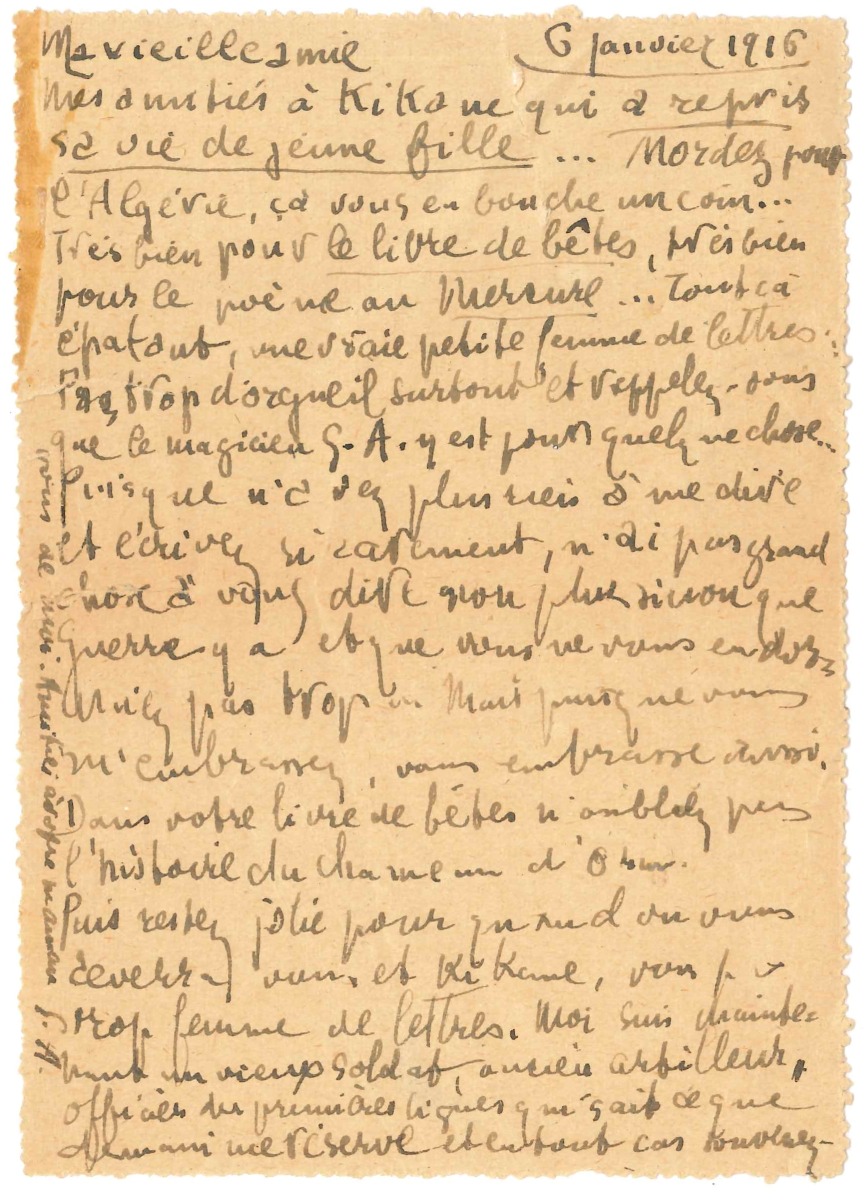 Ma vieille amie 6 janvier 1916
Mes amitiés à Kikane qui a repris
sa vie de jeune fille ... Mordez pour
l'Algérie, ça vous en bouche un coin...
Très bien pour le livre de bêtes, très bien
pour le poème au Mercure ... Tout ça
épatant, une vraie petite femme de lettres...
Pas trop d'orgueil surtout et rappelez-vous
que le magicien G. A. y est pour quelque chose...
Puisque n'avez plus rien à me dire
et écrivez si rarement, n'ai pas grand
chose à vous dire non plus sinon que
guerre y a et que vous ne vous en dou-
pas trop Mais puisque vous
m'embrassez, vous embrasse aussi.
Dans votre livre de bêtes n'oubliez pas
l'histoire du chameau d'Oran.
Puis restez jolie pour quand on vous
reverra vous et Kikane, vous pas
trop femme de lettres. Moi suis mainte=
nant un vieux soldat, ancien artilleur,
officier des premières lignes qui sait ce que
demain me réserve et en tout cas souvenez-
vous de moi. Amitiés à votre maman G. A.